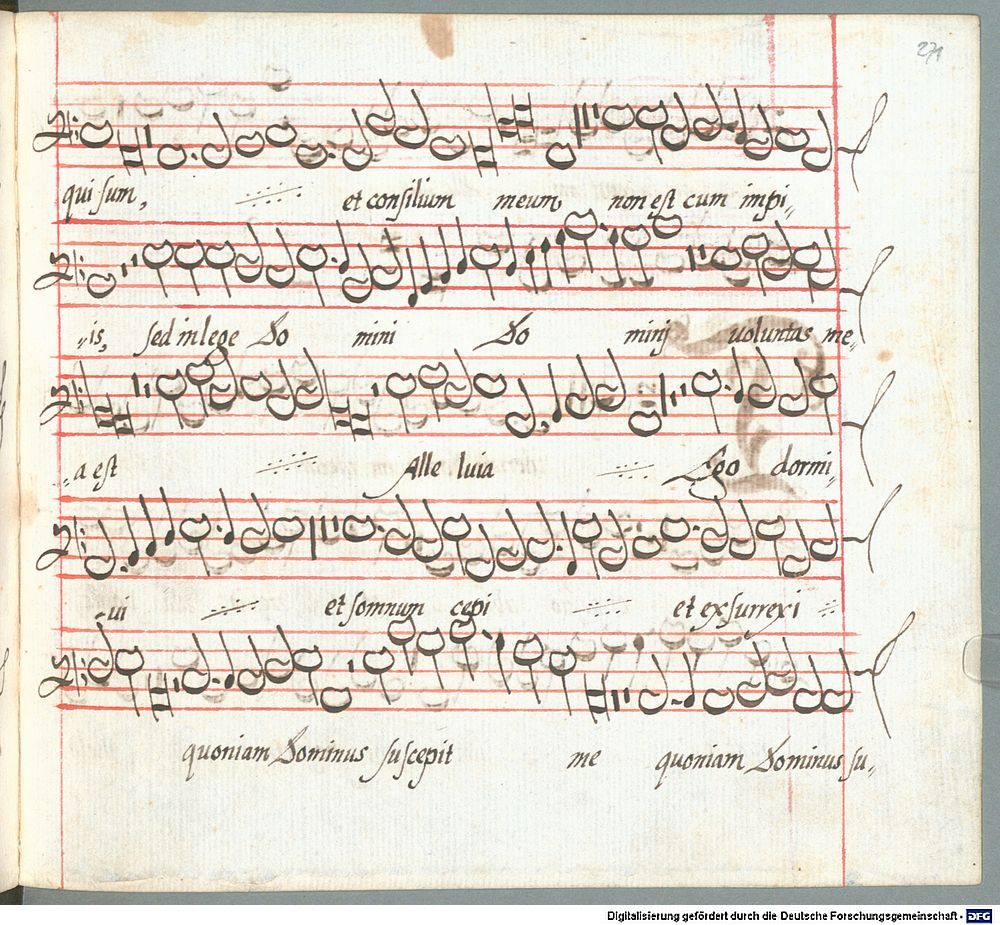 271
qui sum, et consilium meum non est cum impi„
„is, sed in lege Do mini Do minj uoluntas me„
„a est Alle luia Ego dormi„
„ui et somnum cepi et exsurrexi
quoniam Dominus suscepit me quoniam Dominus su„
Digitalisierung gefördert durch die Deutsche Forschungsgemeinschaft - DFG